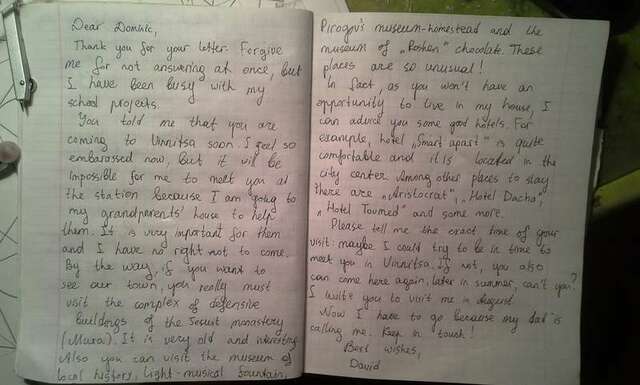 Dear Dominic,
Thank you for your letter. Forgive
me for not answering at once, but
I have been busy with my
school projects.
You told me that you are
coming to Vinnitsa soon. I feel so
embarassed now, but it will be
impossible for me to meet you at
the station because I am going to
my grandparents' house to help
them. It is very important for them
and I have no right not to come.
By the way, if you want to
see our town, you really must
visit the complex of defensive
buildings of the Jesuit monastery
(Mura). It is very old and interesting.
Also you can visit the museum of
local history, light-musical fountain,
Pirogov's museum-homestead and the
museum of „Roshen" chocolate. These
places are so unusual!
In fact, as you won't have an
opportunity to live in my house, I
can advice you some good hotels. For
example, hotel „Smart apart" is quite
comfortable and it is located in the
city center. Among other places to stay
there are „Aristocrat", „Hotel Dacha",
„Hotel Toumed" and some more.
Please tell me the exact time of your
visit: maybe I could try to be in time to
meet you in Vinnitsa. If not, you also
can come here again, later in summer, can't you?
I invite you to visit me in August.
Now I have to go because my dad is
calling me. Keep in touch!
Best wishes,
David